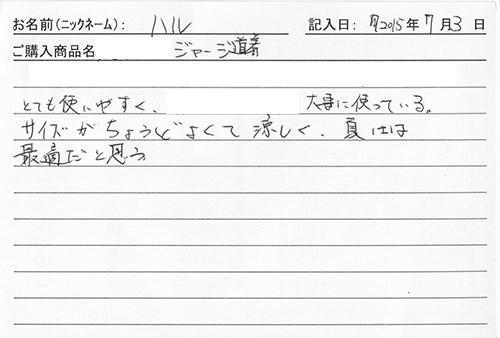 お名前(ニックネーム): ハル 記入日: 2015年7月3日
ご購入商品名 ジャージ道着
とても使いやすく、 大事に使っている。
サイズがちょうどよくて涼しく、夏には
最適だと思う